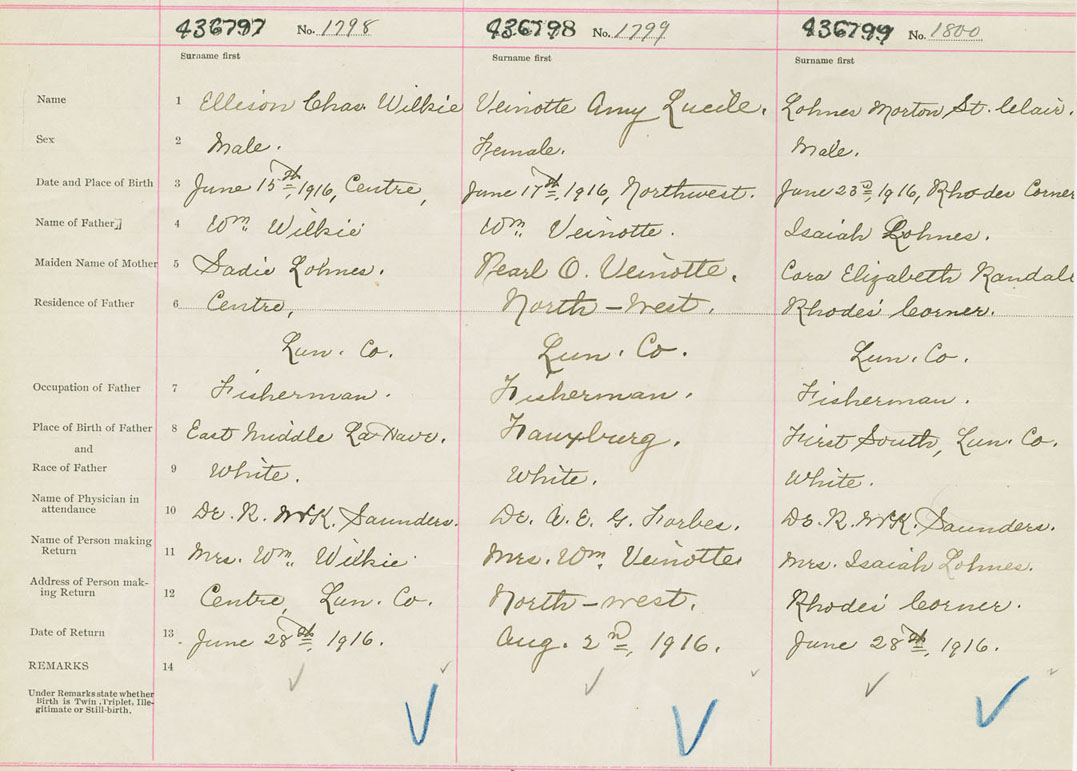 436797 No. 1798 436798 No. 1799 436799 No. 1800
Surname first Surname first Surname first
Name 1 Ellison Chas. Wilkie Veinotte Amy Lucile. Lohnes Morton St. Clair.
Sex 2 Male. Female. Male.
Date and Place of Birth 3 June 15th, 1916, Centre, June 17th, 1916, Northwest. June 23rd, 1916, Rhodes Corner
Name of Father 4 Wm Wilkie Wm. Veinotte. Isaiah Lohnes.
Maiden Name of Mother 5 Sadie Lohnes. Pearl O. Veinotte. Cora Elizabeth Randall
Residence of Father 6 Centre, North-West. Rhodes' Corner.
Lun. Co. Lun. Co. Lun. Co.
Occupation of Father 7 Fisherman. Fisherman. Fisherman.
Place of Birth of Father 8 East Middle La Have. Fauxburg. First South, Lun. Co.
and
Race of Father 9 White. White. White.
Name of Physician in
attendance 10 Dr. R. McK. Saunders. Dr. A. E. G. Forbes. Dr. R. McK. Saunders.
Name of Person making
Return 11 Mrs. Wm. Wilkie Mrs. Wm. Veinotte Mrs. Isaiah Lohnes.
Address of Person mak-
ing Return 12 Centre, Lun. Co. North-west. Rhodes' Corner.
Date of Return 13 June 28th, 1916. Aug. 2nd, 1916. June 28th, 1916.
REMARKS 14
Under Remarks state whether
Birth is Twin, Triplet, Ille-
gitimate or Still-birth.